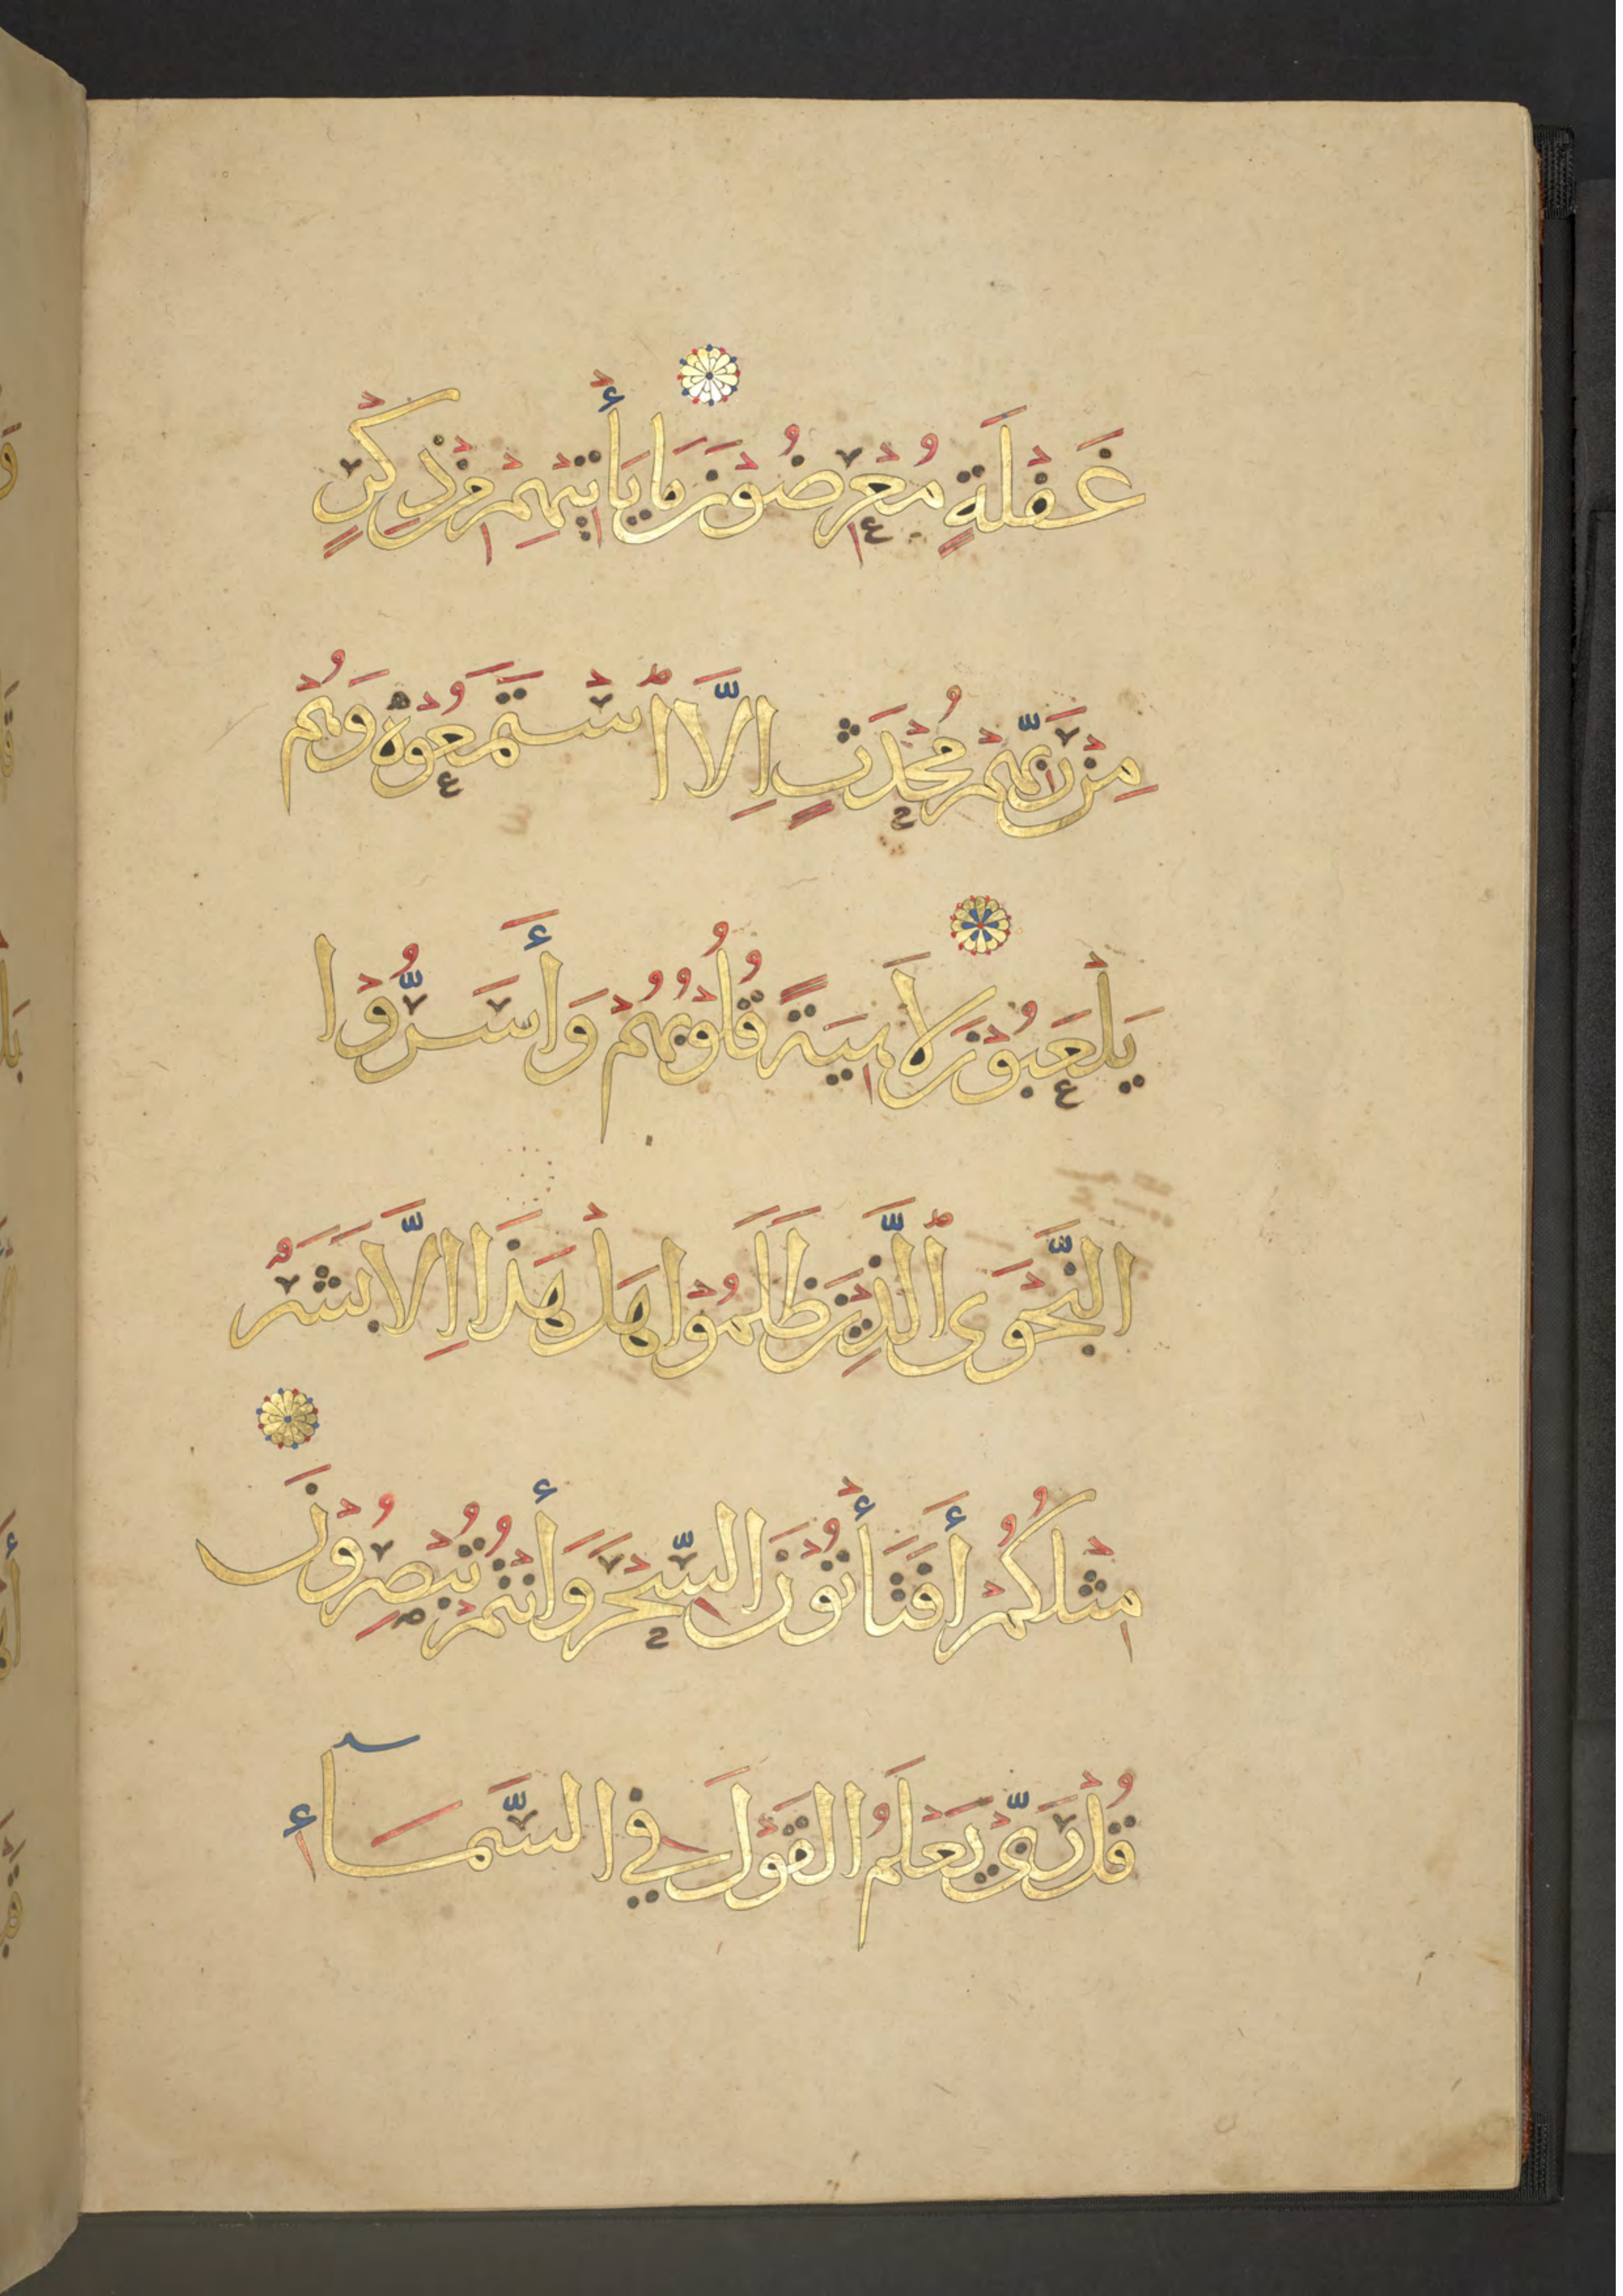 غَفْلَةٍ مُعْرِضُوْنَ مَا يَأْتِيْهِمْ مِنْ ذِكْرٍ
مِنْ رَبِّهِمْ مُحْدَثٍ اِلَّا اسْتَمَعُوْهُ وَهُمْ
يَلْعَبُوْنَ لَاهِيَةً قُلُوْبُهُمْ وَأَسَرُّوْا
النَّجْوَى الَّذِيْنَ ظَلَمُوْا هَلْ هَذَا اِلَّا بَشَرٌ
مِثْلُكُمْ أَفَتَأْتُوْنَ السِّحْرَ وَأَنْتُمْ تُبْصِرُوْنَ
قُلْ رَبِّيْ يَعْلَمُ الْقَوْلَ فِي السَّمَآءِ